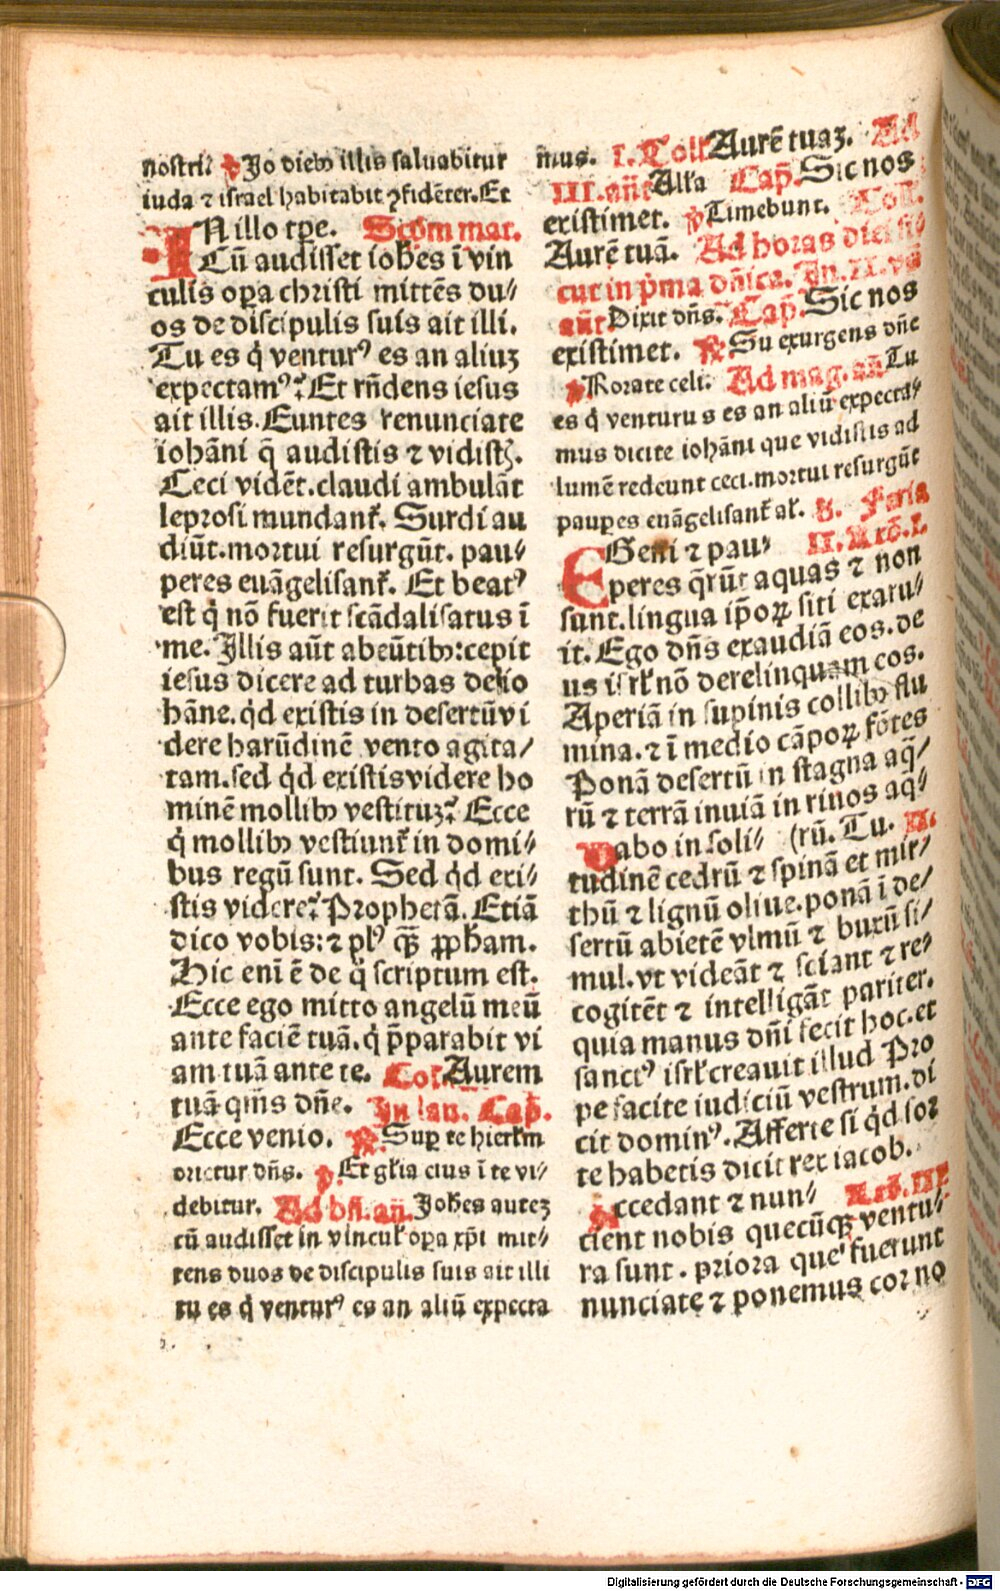 nostri? ℣ In dieb9 illis saluabitur
iuda ⁊ israel habitabit ꝯfidēter. Et
IN illo tꝑe. Scḋm mat.
Cū audisset ioh̄es ī vin
culis oꝑa christi mittēs du⸗
os de discipulis suis ait illi.
Tu es q̇ ventur⁹ es an aliuꝫ
expectam⁹? Et rn̄dens iesus
ait illis. Euntes renunciate
iohāni q̄ audistis ⁊ vidistꝭ.
Ceci vidēt. claudi ambulāt
leprosi mundant̃. Surdi au
diūt. mortui resurgūt. pau⸗
peres euāgelisant̃. Et beat⁹
est q̇ nō fuerit scādalisatus ī
me. Illis aūt abeūtib9: cepit
iesus dicere ad turbas de io
hāne. qḋ existis in desertū vi
dere harūdinē vento agita/
tam. sed qḋ existis videre ho
minē mollib9 vestituꝫ? Ecce
q̇ mollib9 vestiunt̃ in domi⸗
bus regū sunt. Sed qḋ exi⸗
stis videre? Prophetā. Etiā
dico vobis: ⁊ pl⁹ qꝫ̄ ꝓph̄am.
Hic eni ē de q̊ scriptum est.
Ecce ego mitto angelū meū
ante faciē tuā. q̇ p̄parabit vi
am tuā ante te. Col. Aurem
tuā qm̄s dn̄e. In lau. Cap̄.
Ecce venio. ℟. Suꝑ te hierl̄m
orietur dn̄s. ℣. Et gl̄ia eius ī te vi⸗
debitur. Ad bn̄. an̄. Joh̄es auteꝫ
cū audisset in vincul̄ oꝑa xp̄i mit⸗
tens duos de discipulis suis ait illi
tu es q̇ ventur⁹ es an aliū expecta
mus. I. Coll̄ Aurē tuaꝫ. Ad
III. an̄t Alla Cap̄. Sic nos
existimet. ℣ Timebunt. Coll.
Aurē tuā. Ad horas diei si⸗
cut in p̄ma dn̄ica. In II. vꝫ
an̄t Dixit dn̄s. Cap̄. Sic nos
existimet. ℟ Su exurgens dn̄e
℣ Rorate celi. Ad mag. an̄ Tu
es q̇ venturus es an aliū expecta⸗
mus dicite iohāni que vidistis ad
lumē redeunt ceci. mortui resurgūt
pauꝑes euāgelisant̃ al̄. S. Feria
EGeni ⁊ pau⸗ II. Lec̄. I.
peres q̄rūt aquas ⁊ non
sunt. lingua ip̄oꝝ siti exaru⸗
it. Ego dn̄s exaudiā eos. de
us isrl̄ nō derelinquam eos.
Aperiā in supinis collib9 flu
mina. ⁊ ī medio cāpoꝝ fōtes
Ponā desertū in stagna aq̄/
rū ⁊ terrā inuiā in riuos aq̄⸗
Dabo in soli⸗ (rū. Tu. II.
tudinē cedrū ⁊ spinā et mir/
thū ⁊ lignū oliue. ponā ī de/
sertū abietē vlmū ⁊ buxū si/
mul. vt videāt ⁊ sciant ⁊ re⸗
cogitēt ⁊ intelligāt pariter.
quia manus dn̄i fecit hoc. et
sanct⁹ isrl̄ creauit illud Pro
pe facite iudiciū vestrum. di
cit domin⁹. Afferte si qḋ for
te habetis dicit rex iacob.
Accedant ⁊ nun⸗ Lec̄. III.
cient nobis quecūqꝫ ventu⸗
ra sunt. priora que fuerunt
nunciate ⁊ ponemus cor no
Digitalisierung gefördert durch die Deutsche Forschungsgemeinschaft - DFG